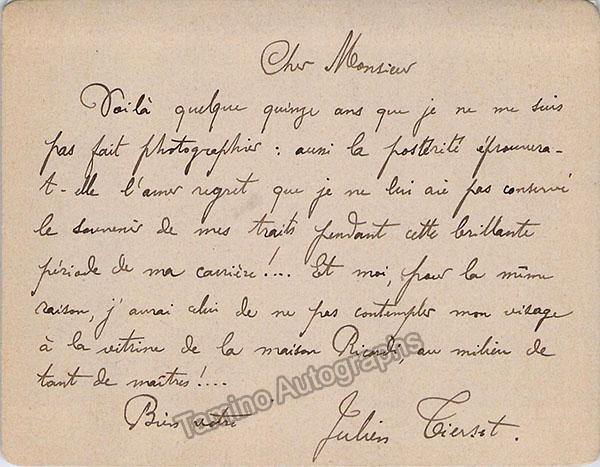 Cher Monsieur
Voilà quelque quinze ans que je ne me suis
pas fait photographier : aussi la postérité éprouvera-
t-elle l'amer regret que je ne lui aie pas conservé
le souvenir de mes traits pendant cette brillante
période de ma carrière !.... Et moi, pour la même
raison, j'aurai celui de ne pas contempler mon visage
à la vitrine de la maison Ricordi, au milieu de
tant de maîtres !....
Bien vôtre
Julien Tiersot.
Tamino Autographs